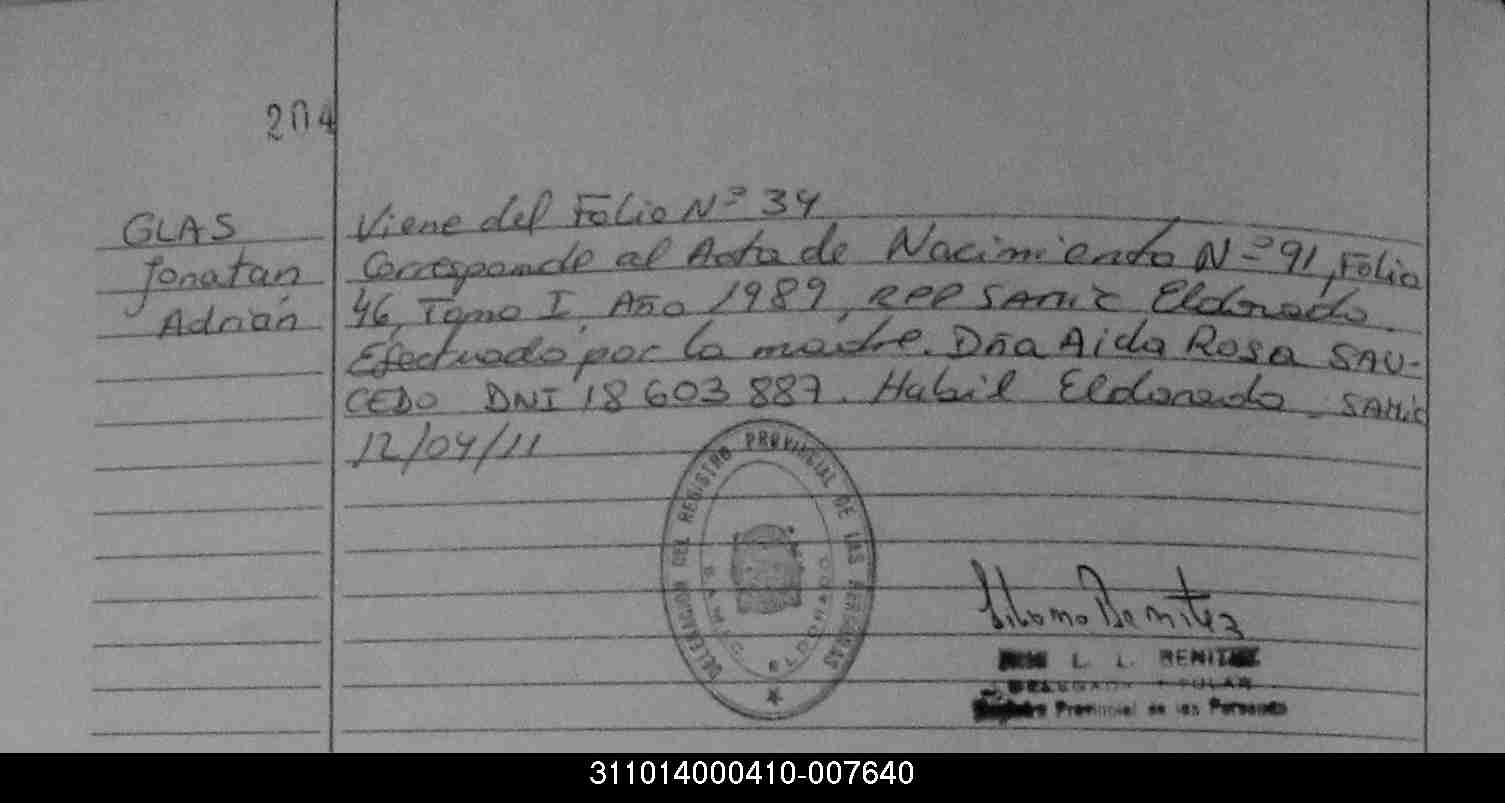 204
GLAS
Jonatan
Adrián
Viene del Folio Nº 34
Corresponde al Acta de Nacimiento Nº 91, Folio
46, Tomo I, Año 1989, RPP SAMIC Eldorado.
Efectuado por la madre. Dña Aida Rosa SAU-
CEDO DNI 18 603 887. Habil Eldorado. SAMIC
12/04/11
DELEGACION DEL REGISTRO PROVINCIAL DE LAS PERSONAS
SAMIC ELDORADO
Benitez
L. L. BENITEZ
DELEGADA TITULAR
Registro Provincial de las Personas
311014000410-007640